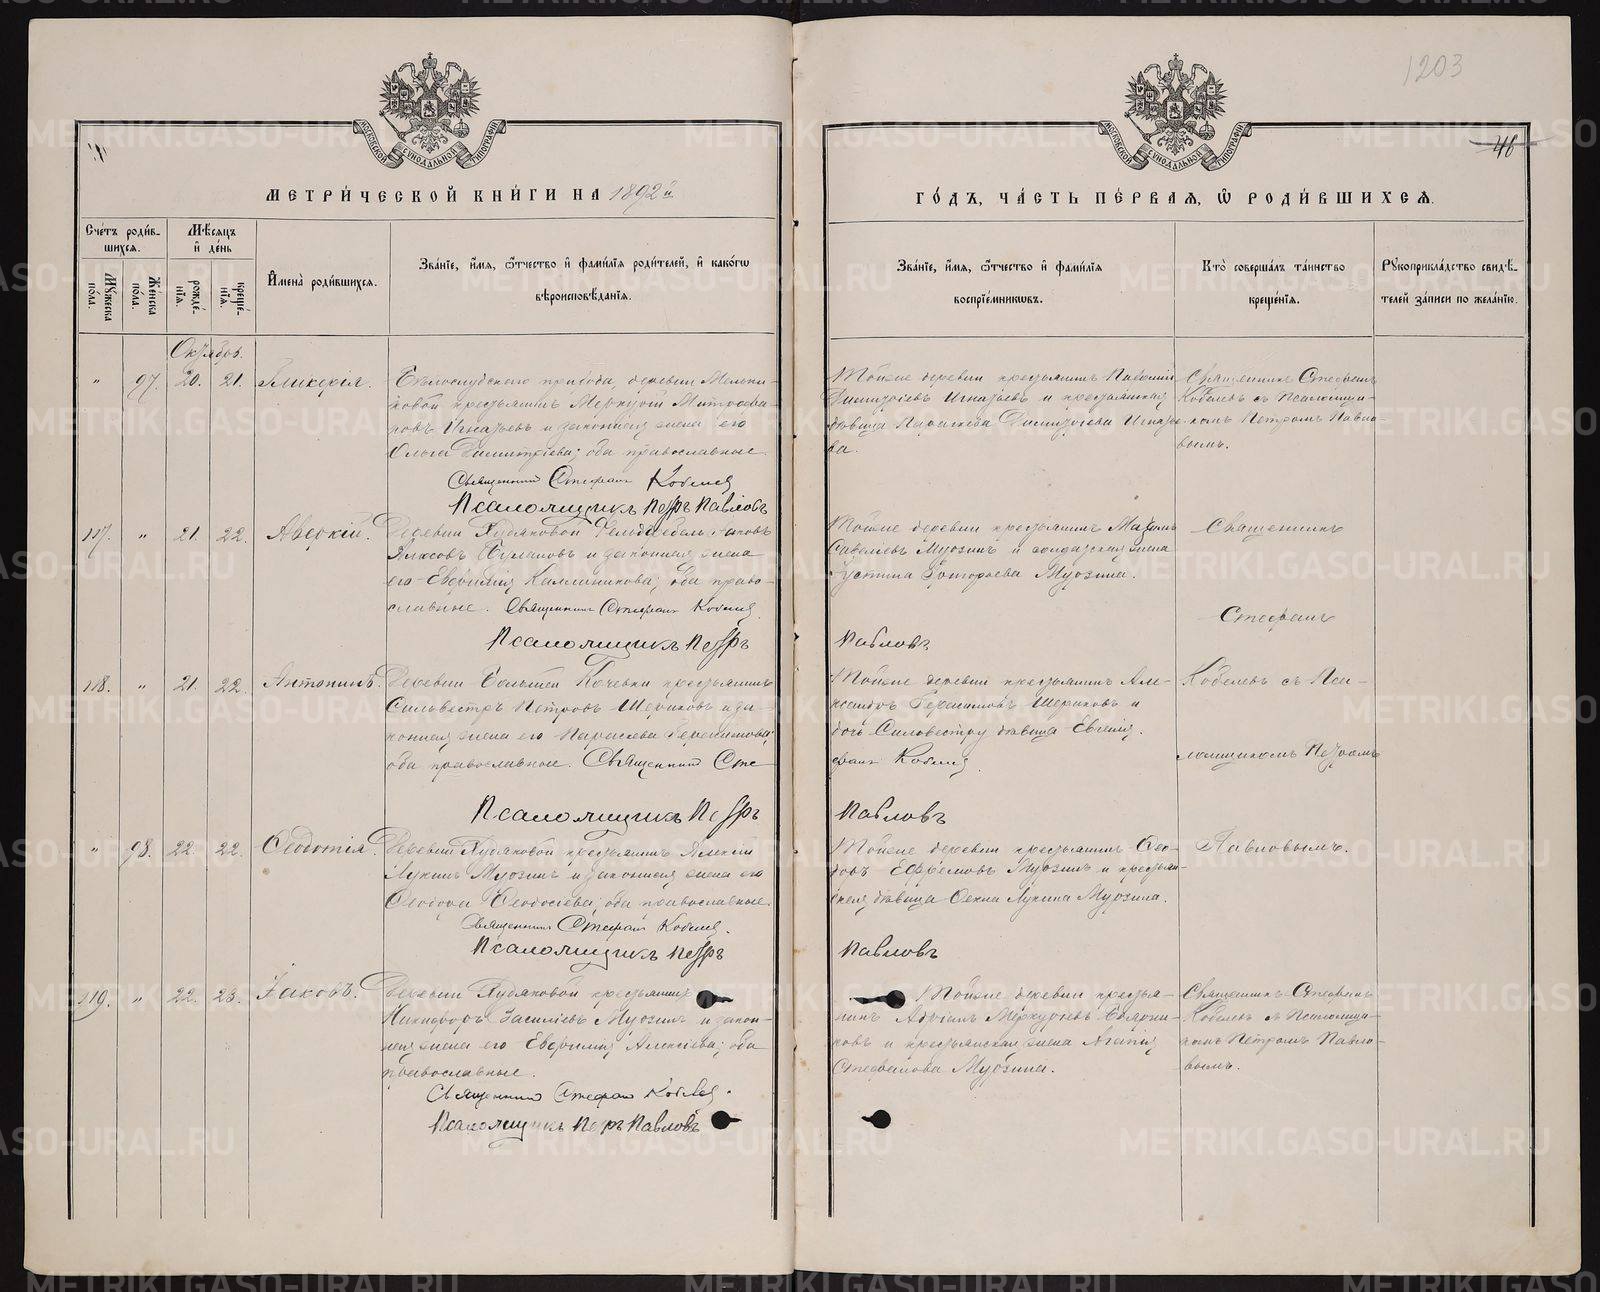 1203
48
МЕТРИ́ЧЕСКОЙ КНИ́ГИ НА 1892й
ГО́ДЪ, ЧА́СТЬ ПЕ́РВАЯ, Ѿ РОДИ́ВШИХСЯ.
Сче́тъ роди́в-
шихся.
Мѣсяцъ
и де́нь
Мꙋ́жеска
пола.
Же́нска
по́ла.
рожде́-
нїя.
креще́-
нїя.
Имена̀ роди́вшихся.
Зва́нїе, и́мя, ѻ́тчество и фами́лїя роди́телей, и како́гѡ
вѣроисповѣ́данїя.
Зва́нїе, и́мя, ѻ́тчество и фами́лїя
воспрїе́мникѡвъ.
Кто̀ соверша́лъ та́инство
креще́нїя.
Рꙋкоприкла́дство свидѣ́-
телей за́писи по жела́нїю.
Октябрь.
" 97. 20. 21. Гликерія.
Бѣлослудскаго прихода, деревни Мельни-
ковой крестьянинъ Меркурій Митрофа-
новъ Игнатьевъ и законная жена его
Ольга Димитріева; оба православные.
Священникъ Стефанъ Кобелев
Псаломщикъ Петръ Павловъ
Тойже деревни крестьянинъ
Димитріевъ Игнатьевъ и крестьянская
дѣвица Параскева Димитріева Игнатье-
ва.
Священникъ Стефанъ
Кобелевъ съ Псаломщи-
комъ Петромъ Павло-
вымъ.
117. " 21. 22. Аверкій.
Деревни Худяковой Фельдфебель Іаковъ
и законная жена
его Евфимія Каллиникова; оба право-
славные. Священникъ Стефанъ Кобелев
Псаломщикъ Петръ
Павловъ
Тойже деревни крестьянинъ Максимъ
Савельевъ Мурзинъ и солдатская жена
Іустина Григорьева Мурзина.
Священникъ
Стефанъ
118. " 21. 22. Антонинъ.
Деревни Большой Кочевки крестьянинъ
Сильвестръ Петровъ Шериховъ и за-
конная жена его Параскева Герасимова;
оба православные. Священникъ Сте
фанъ Кобелев
Псаломщикъ Петръ
Павловъ
Тойже деревни крестьянинъ Але-
ксандръ Герасимовъ Шериховъ и
дочь Сильвестру дѣвица Евгенія.
Кобелевъ съ Пса-
ломщикомъ Петромъ
" 98. 22. 22. Ѳеодотія.
Деревни Худяковой крестьянинъ Алексѣй
Лукинъ Мурзинъ и законная жена его
Ѳеодора Ѳеодосіева; оба православные.
Священникъ Стефанъ Кобелев.
Псаломщикъ Петръ
Павловъ
Тойже деревни крестьянинъ Ѳео-
доръ Ефремовъ Мурзинъ и крестьян-
ская дѣвица Ѳекла Лукина Мурзина.
Павловымъ.
119. " 22. 23. Іаковъ.
Деревни Худяковой крестьянинъ
Никифоръ Васильевъ Мурзинъ и закон-
ная жена его Евфимія Алексіева; оба
православные.
Священникъ Стефанъ Кобелев.
Псаломщикъ Петръ Павловъ
Тойже деревни крестья-
нинъ Адріанъ Меркурьевъ
и крестьянская жена Агапія
Стефанова Мурзина.
Священникъ Стефанъ
Кобелевъ съ Псаломщи-
комъ Петромъ Павло-
вымъ.